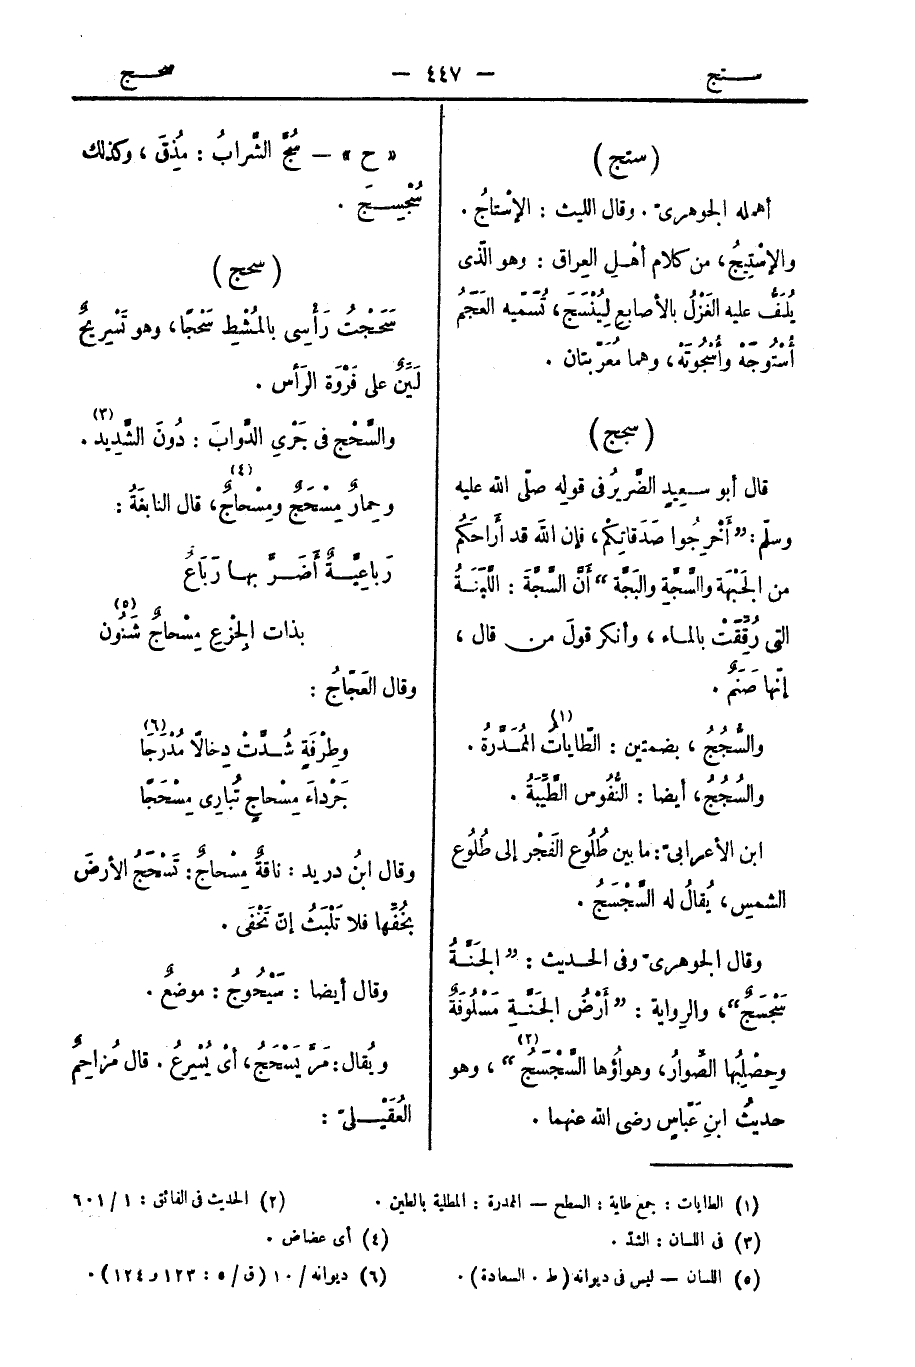 ستج
— ٤٤٧ —
سحج
( ستج )
أهمله الجوهرىّ . وقال الليث : الإسْتاجُ .
والإِسْتِيجُ ، من كلام أهْلِ العِراق : وهو الّذى
يُلَفُّ عليه الغَزْلُ بالأصابع لِيُنْسَجَ ، تُسَمّيه العَجَمُ
أُسْتُوجَهْ وأُسْجُوتَهْ ، وهما مُعَرّبتان .
( سجج )
قال أبو سعِيدٍ الضَّرِيرُ فى قوله صلّى الله عليه
وسلّم : "أَخْرِجُوا صَدَقاتِكُمْ ، فإن اللهَ قد أَراحَكُم
من الجَبْهَةِ والسَّجَّةِ والبَجَّة" أَنَّ السَّجَّةَ : اللَّبَنَةُ
التى رُقِّقَتْ بالماء ، وأنكر قولَ من قال ،
إنّها صَنَمٌ .
والسُّجُجُ ، بضمتين : الطّاياتُ(١) المُمَدَّرَةُ .
والسُجُجُ ، أيضا : النُّفُوس الطَّيِّبَةُ .
ابن الأعرابىّ : ما بين طُلُوع الفَجْر إلى طُلُوع
الشمس ، يُقالُ له السَّجْسَجُ .
وقال الجوهرىّ وفى الحديث : "الجَنَّةُ
سَجْسَجٌ" ، والرواية : "أَرْضُ الجَنَّةِ مَسْلُوفَةٌ
وحِصْلِبُها الصُّوارُ ، وهواؤُها السَّجْسَجُ(٢)" ، وهو
حديثُ ابنِ عَبّاسٍ رضى الله عنهما .
« ح » — سُجَّ الشَّرابُ : مُذِقَ ، وكذلك
سُجْسِجَ .
( سحج )
سَحَجْتُ رَأْسِى بالمُشْطِ سَحْجًا ، وهو تَسْرِيحٌ
لَيِّنٌ على فَرْوَة الرَأس .
والسَّحْج فى جَرْىِ الدَّوابّ : دُونَ الشَّدِيد(٣) .
وحِمارٌ مِسْحَجٌ ومِسْحاجٌ(٤) ، قال النابغَةُ :
رَباعِيَّةٌ أَضَرَّ بها رَبَاعٌ
بذات الجِزْعِ مِسْحاجٌ شَنُون(٥)
وقال العَجّاجُ :
وطِرْفَةٍ شُدَّتْ دِخالًا مُدْرَجَا(٦)
جَرْداءَ مِسْحاجٍ تُبارِى مِسْحَجَا
وقال ابنُ دريد : ناقةٌ مِسْحاجٌ : تَسْحَجُ الأرضَ
بخُفِّها فلا تَلْبَثُ إنْ تَحْفَى .
وقال أيضا : سَيْحُوجُ : موضعٌ .
ويُقال : مَرَّ يَسْحَجُ ، أىْ يُسْرِعُ . قال مُزاحِمٌ
العُقَيْلىّ :
(١) الطايات : جمع طاية : السطح — الممدرة : المطلية بالطين .
(٢) الحديث فى الفائق : ١ / ٦٠١
(٣) فى اللسان : الشدّ .
(٤) أى عضاض .
(٥) اللسان — ليس فى ديوانه ( ط . السعادة ) .
(٦) ديوانه / ١٠ ( ق / ٥ : ١٢٣ و ١٢٤ ) .